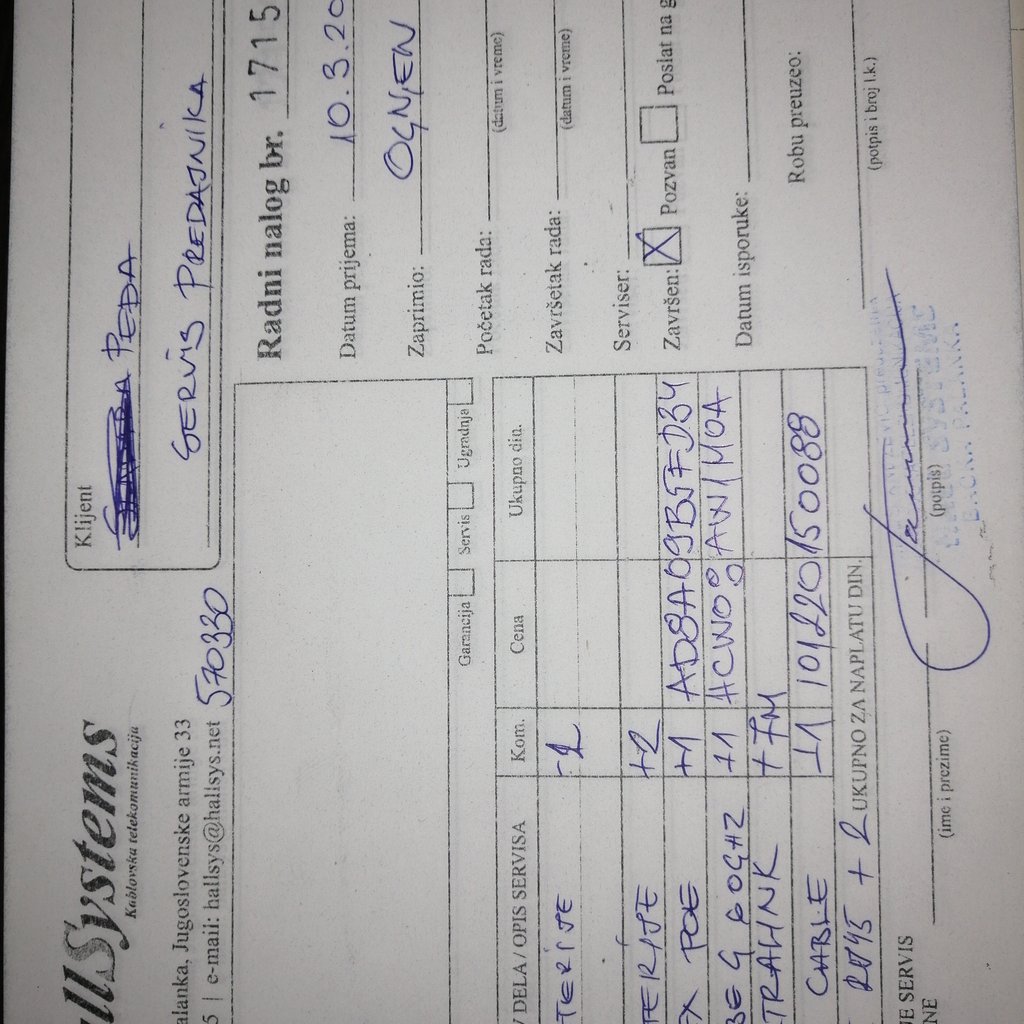 allSystems
Kablovska telekomunikacija
alanka, Jugoslovenske armije 33
5 | e-mail: hallsys@hallsys.net
570330
Klijent
PEĐA
SERVIS PREDAJNIKA
Radni nalog br. 1715
Datum prijema: 10.3.20
Zaprimio: OGNJEN
Početak rada:
(datum i vreme)
Završetak rada:
(datum i vreme)
Serviser:
Završen: X Pozvan Poslat na g
Datum isporuke:
Robu preuzeo:
(potpis i broj l.k.)
Garancija Servis Ugradnja
DELA / OPIS SERVISA Kom. Cena Ukupno din.
TERIJE -2
TERIJE +2
EX POE +1 AD8A09B5FD34
BE G 60GHZ +1 HCW08AW1M0A
TRALINK +7M
CABLE +1 101220150088
RJ45 + 2 UKUPNO ZA NAPLATU DIN.
E SERVIS
NE
(ime i prezime)
(potpis)
SYSTEMS
BAČKA PALANKA